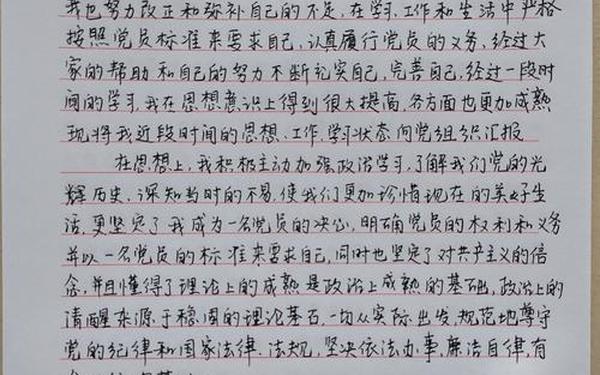 我也努力改正和弥补自己的不足，在学习、工作和生活中严格
按照党员标准来要求自己，认真履行党员的义务，经过大
家的帮助和自己的努力不断充实自己，完善自己，经过一段时
间的学习，我在思想意识上得到很大提高，各方面也更加成熟
现将我近段时间的思想、工作、学习状态向党组织汇报
在思想上，我积极主动加强政治学习，了解我们党的光
辉历史，深知当时的不易，使我们更加珍惜现在的美好生
活，更坚定了我成为一名党员的决心，明确党员的权利和义务
并以一名党员的标准来要求自己，同时也坚定了对共产主义的信
念，并且懂得了理论上的成熟是政治上成熟的基础，政治上的
清醒来源于稳固的理论基石，一切从实际出发，规范地遵守
党的纪律和国家法律、法规，坚决依法办事，廉洁自律，有